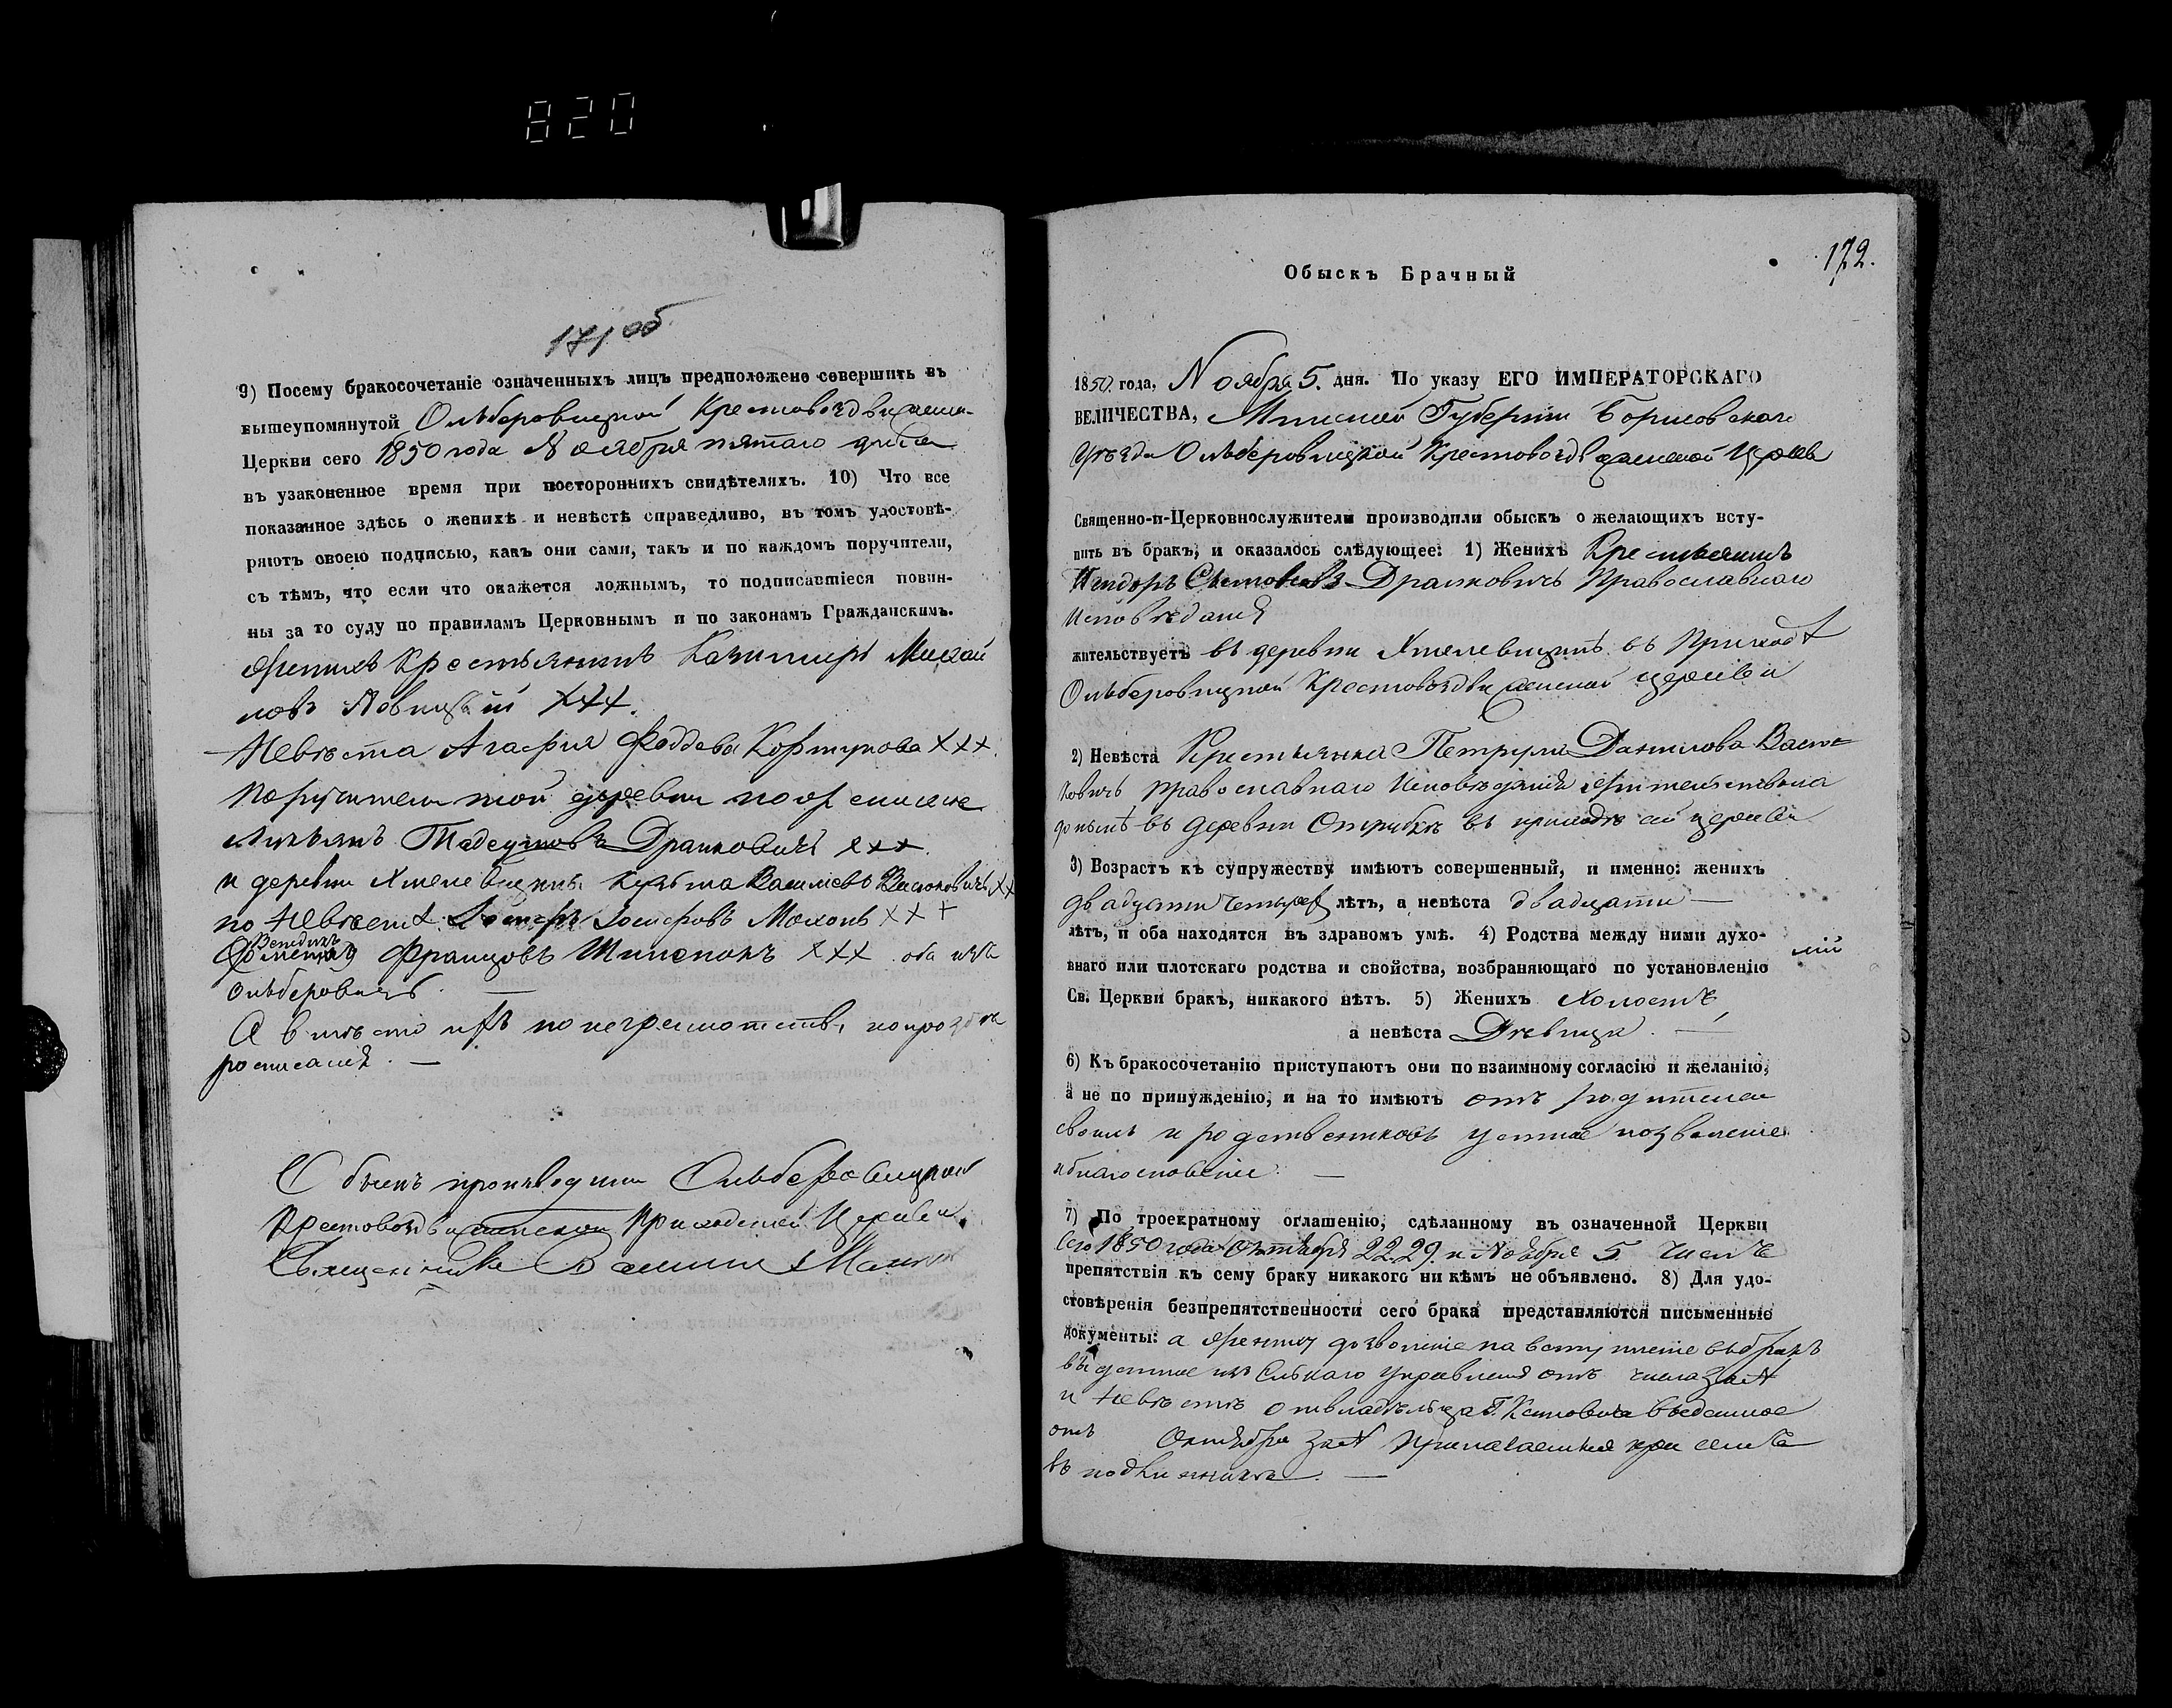 820
171 об
9) Посему бракосочетаніе означенныхъ лицъ предположено совершить въ
вышеупомянутой Ольберовицкой Крестовоздвиженской
Церкви сего 1850 года Ноября пятаго числа
въ узаконенное время при постороннихъ свидѣтеляхъ. 10) Что все
показанное здѣсь о женихѣ и невѣстѣ справедливо, въ томъ удостовѣ-
ряютъ своею подписью, какъ они сами, такъ и по каждомъ поручители,
съ тѣмъ, что если что окажется ложнымъ, то подписавшіеся повин-
ны за то суду по правиламъ Церковнымъ и по законамъ Гражданскимъ.
Женихъ Крестьянинъ Казимиръ Михай
ловъ Новицкій ХХХ.
Невѣста Агафия Фаддева Кортунова ХХХ.
Поручители той деревни по женихе
Тадеушовъ Драпковичъ ххх.
и деревни Хмелевщины Кузьма Василіевъ Васюковичъ ХХ
по Невѣсте Іосифовъ ХХ+
Бенедиктъ
Францовъ ХХХ оба изъ
Ольберовичъ.
А вместо ихъ по неграмотству, по прозбе
росписался. —
Обыскъ производили Ольберовицкой
Крестовоздвиженской Приходской Церкви
Священникъ
172.
Обыскъ Брачный
1850. года, Ноября 5. дня. По указу ЕГО ИМПЕРАТОРСКАГО
ВЕЛИЧЕСТВА, Минской Губерніи Борисовскаго
Уѣзда Ольберовицкой Крестовоздвиженской Церкви
Священно-и-Церковнослужители производили обыскъ о желающихъ всту-
пить въ бракъ, и оказалось слѣдующее: 1) Женихъ Крестьянинъ
Драпковичъ Православнаго
Исповѣданія
жительствуетъ въ деревни Хмелевщинѣ въ Приходѣ
Ольберовицкой Крестовоздвиженской церкви
2) Невѣста Крестьянка Петруля Данилова Васю-
ковичъ православнаго Исповѣданія жительствовала
донынѣ въ деревни Отрубкѣ въ приходѣ сей церкви
3) Возрастъ къ супружеству имѣютъ совершенный, и именно: женихъ
двадцати четырехъ лѣтъ, а невѣста двадцати —
лѣтъ, и оба находятся въ здравомъ умѣ. 4) Родства между ними духо-
внаго или плотскаго родства и свойства, возбраняющаго по установленію
Св. Церкви бракъ, никакого нѣтъ. 5) Женихъ Холостъ,
а невѣста Дѣвица. —
6) Къ бракосочетанію приступаютъ они по взаимному согласію и желанію,
а не по принужденію, и на то имѣютъ отъ родителей
своихъ и родственниковъ устное позволеніе
и благословеніе. —
7) По троекратному оглашенію, сдѣланному въ означенной Церкви
Сего 1850 года Октября 22. 29. и Ноября 5 числъ
препятствія къ сему браку никакого ни кѣмъ не объявлено. 8) Для удо-
стовѣренія безпрепятственности сего брака представляются письменные
документы: а жениху дозволеніе на вступленіе въ бракъ
выданное изъ Сельскаго Управленія отъ числа за №
и Невѣстѣ отъ владѣльца Г. выданное
отъ Октября за № Прилагаемые при семъ
въ подлинникѣ. —